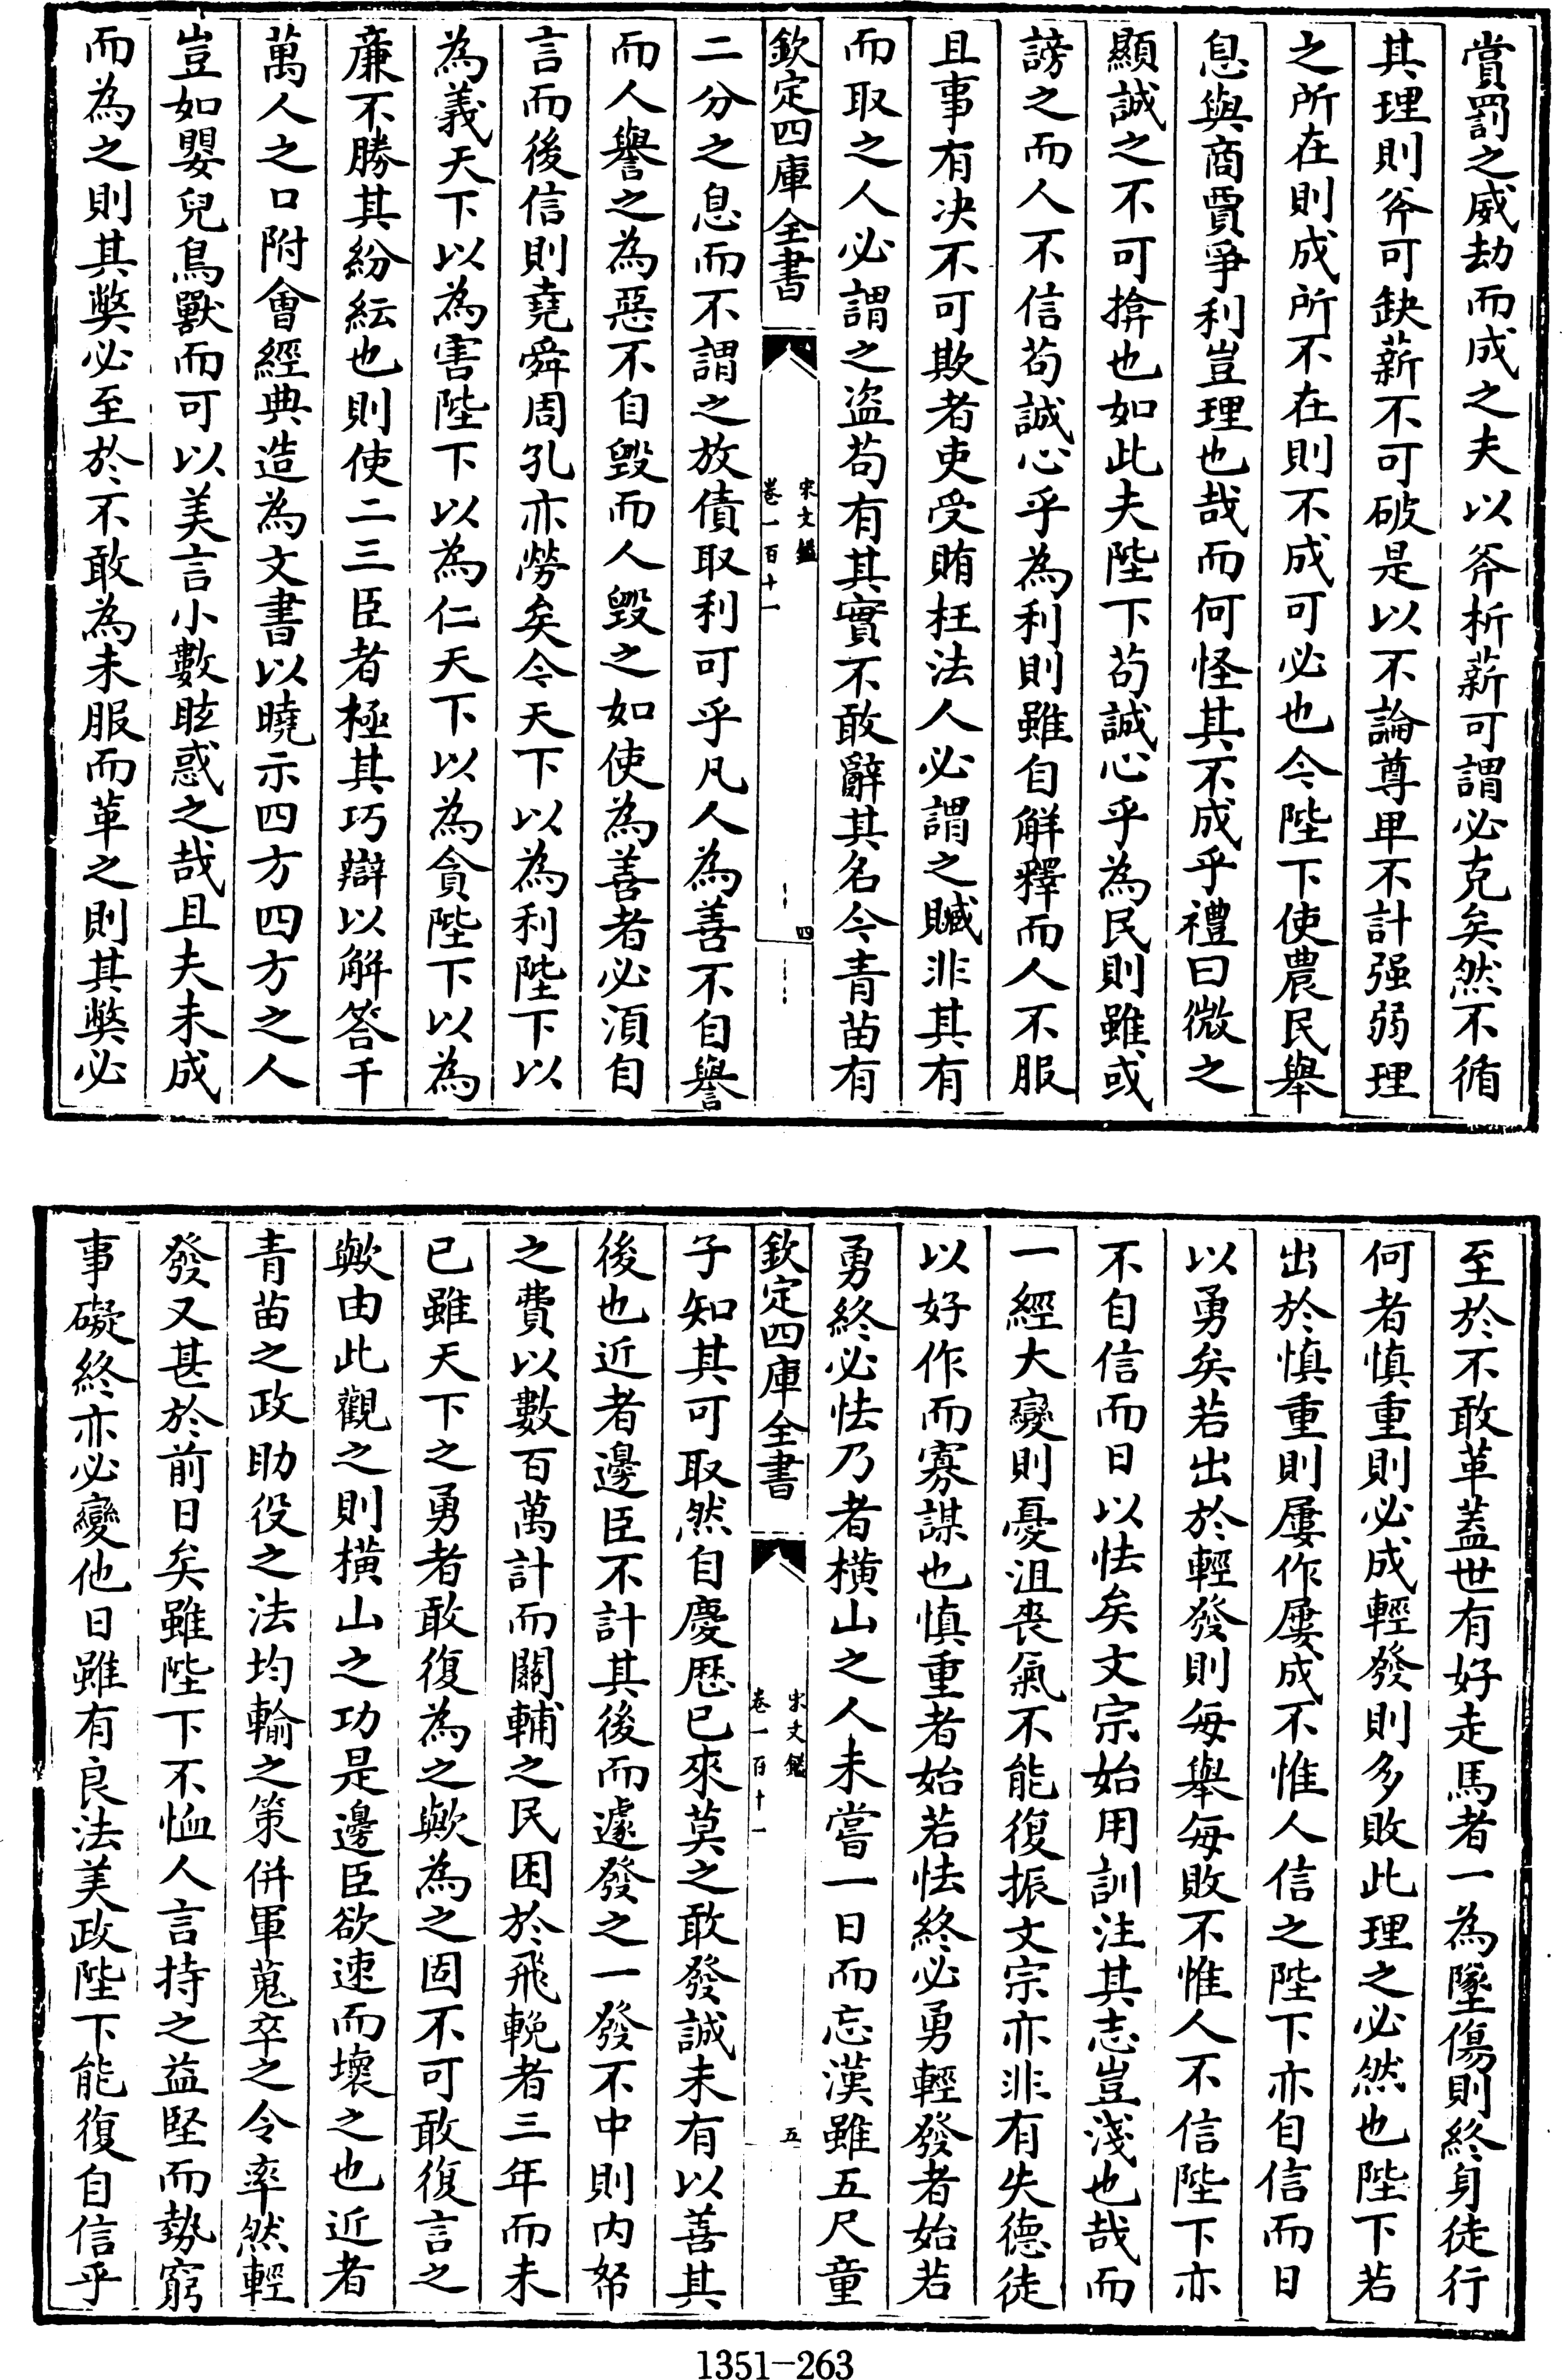 賞罰之威劫而成之夫以斧析薪可謂必克矣然不循
其理則斧可缺薪不可破是以不論尊卑不計强弱理
之所在則成所不在則不成可必也今陛下使農民舉
息與商賈爭利豈理也哉而何怪其不成乎禮曰微之
顯誠之不可揜也如此夫陛下苟誠心乎為民則雖或
謗之而人不信苟誠心乎為利則雖自解釋而人不服
且事有决不可欺者吏受賄枉法人必謂之贓非其有
而取之人必謂之盜苟有其實不敢辭其名今青苗有
欽定四庫全書
宋文鑑
卷一百十一
四
二分之息而不謂之放債取利可乎凡人為善不自譽
而人譽之為惡不自毀而人毀之如使為善者必須自
言而後信則堯舜周孔亦勞矣今天下以為利陛下以
為義天下以為害陛下以為仁天下以為貪陛下以為
亷不勝其紛紜也則使二三臣者極其巧辯以解答千
萬人之口附會經典造為文書以曉示四方四方之人
豈如嬰兒鳥獸而可以美言小數眩惑之哉且夫未成
而為之則其弊必至於不敢為未服而革之則其弊必
至於不敢革蓋世有好走馬者一為墜傷則終身徒行
何者慎重則必成輕發則多敗此理之必然也陛下若
出於慎重則屢作屢成不惟人信之陛下亦自信而日
以勇矣若出於輕發則每舉每敗不惟人不信陛下亦
不自信而日以怯矣文宗始用訓注其志豈淺也哉而
一經大變則憂沮喪氣不能復振文宗亦非有失德徒
以好作而寡謀也慎重者始若怯終必勇輕發者始若
勇終必怯乃者橫山之人未嘗一日而忘漢雖五尺童
欽定四庫全書
宋文鑑
卷一百十一
五
子知其可取然自慶歴已來莫之敢發誠未有以善其
後也近者邊臣不計其後而遽發之一發不中則内帑
之費以數百萬計而關輔之民困於飛輓者三年而未
已雖天下之勇者敢復為之歟為之固不可敢復言之
歟由此觀之則橫山之功是邊臣欲速而壞之也近者
青苗之政助役之法均輸之策併軍蒐卒之令率然輕
發又甚於前日矣雖陛下不恤人言持之益堅而勢窮
事礙終亦必變他日雖有良法美政陛下能復自信乎
1351-263